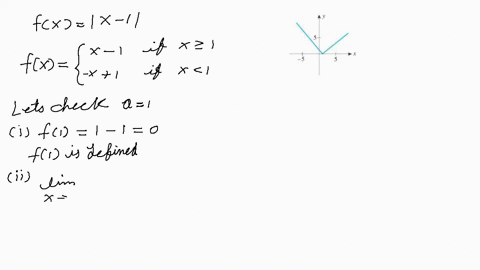 f(x) = |x-1|
f(x) = { x-1 if x ≥ 1
-x+1 if x < 1
Lets check a=1
(i) f(1) = 1-1 = 0
f(1) is defined
(ii) lim
x=
y
5
-5 5 x